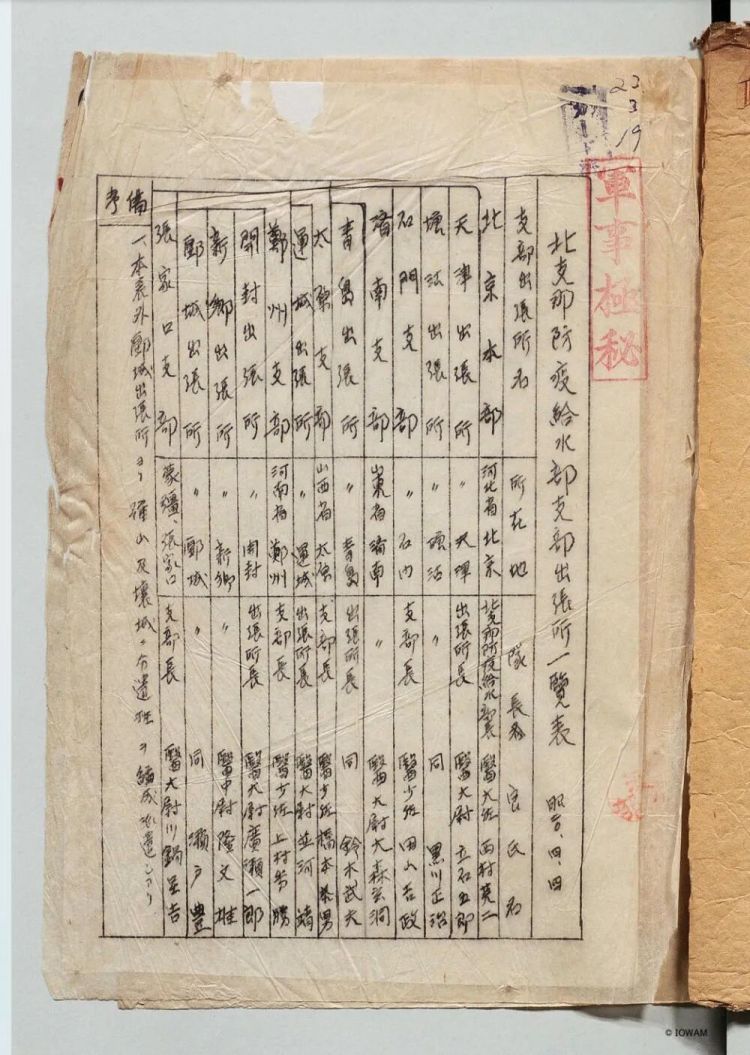 23
3
19
軍事極秘
北支那防疫給水部支部出張所一覧表 昭 四、四
支部出張所名 所在地 隊長 官氏名
北京本部 河北省北京 北支那防疫給水部長 醫大佐 西村英二
天津出張所 〃 天津 出張所長 醫大尉 立石五郎
塘沽出張所 〃 塘沽 〃 同 黒川正治
石門支部 〃 石门 支部長 醫少佐 田山吉政
濟南支部 山東省濟南 〃 醫大尉 大森玄洞
青島出張所 〃 青島 出張所長 同 鈴木武夫
太原支部 山西省太原 支部長 醫少佐 橋本 男
運城出張所 〃 運城 出張所長 醫大尉 並河靖
鄭州支部 河南省鄭州 支部長 醫少佐 上村秀勝
開封出張所 〃 開封 出張所長 醫大尉 廣瀬一郎
新鄉出張所 〃 新鄉 〃 醫中尉 隆文雄
郾城出張所 〃 郾城 〃 同 瀬戸豊
張家口支部 蒙疆、張家口 支部長 醫大尉 川鍋里吉
備考
一、本表外郾城出張所ヨリ 確山及壤城ニ分遣班ヲ編成派遣シアリ
© IOWAM